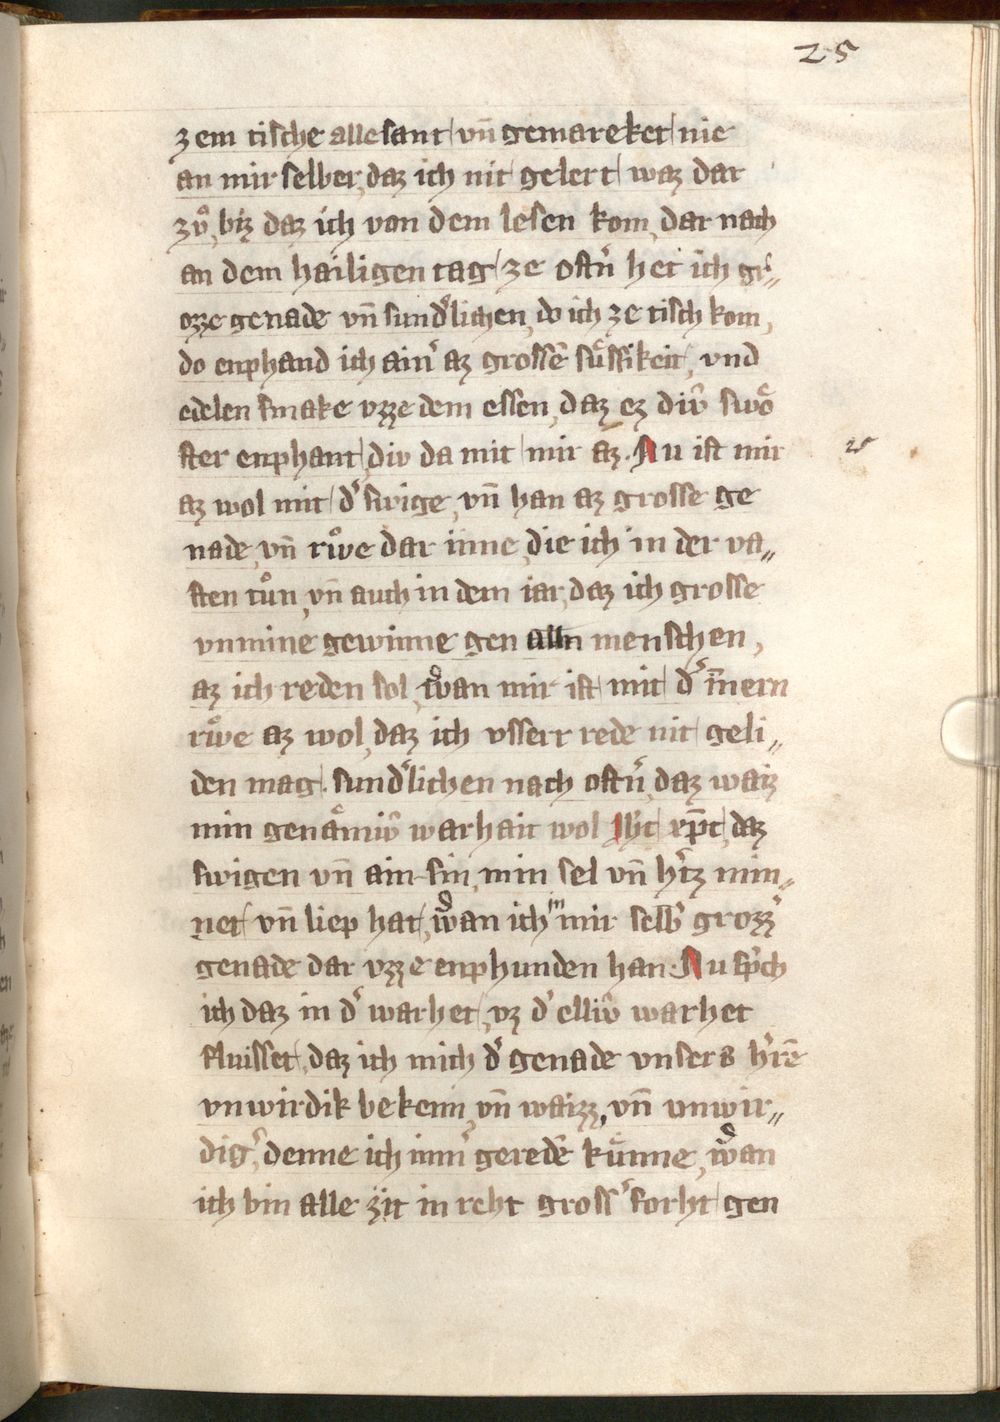 25
zem tische alle sant vn̄ gemareket nie
an mir selber, daz ich nit gelert waz dar
zuͦ, biz daz ich von dem lesen kom, dar nach
an dem hailigen tag ze ostn̛ het ich gr̛„
ozze genade vn̄ sund̛lichen, do ich ze tisch kom,
do enphand ich ain̛ az grossē suͤssikeit, vnd
edelen smake vzze dem essen, daz ez div̂ swoͤ
ster enphant, div da mit mir az. Nu ist mir
az wol mit d̛ swige, vn̄ han az grosse ge
nade, vn̄ rwͦe dar inne, die ich in der va„
sten tuͦn, vn̄ auch in dem iar, daz ich grosse
vnmine gewinne gen alln menschen,
az ich reden sol, wan mir ist mit d̛ īnern
rwͦe az wol, daz ich vsserr rede nit geli„
den mag. sund̛lichen nach ostn̛, daz waiz
min genaͤmiv̂ warhait wol Ih̄c xp̄c, daz
swigen vn̄ ain sin, min sel vn̄ h̛tz min„
net vn̄ liep hat, wan ich in mir selb̛ grozz̛
genade dar vzze enphunden han. Nu sp̛ch
ich daz in d̛ warhet, vz d̛ elliv̂ warhet
fluisset, daz ich mich d̛ genade vnsers h̛rē
vnwirdik bekenn, vn̄ waizz, vn̄ unwir„
dig̛, denne ich imm̛ geredē kuͤnne, wan
ich bin alle zit in reht gross̛ forht gen